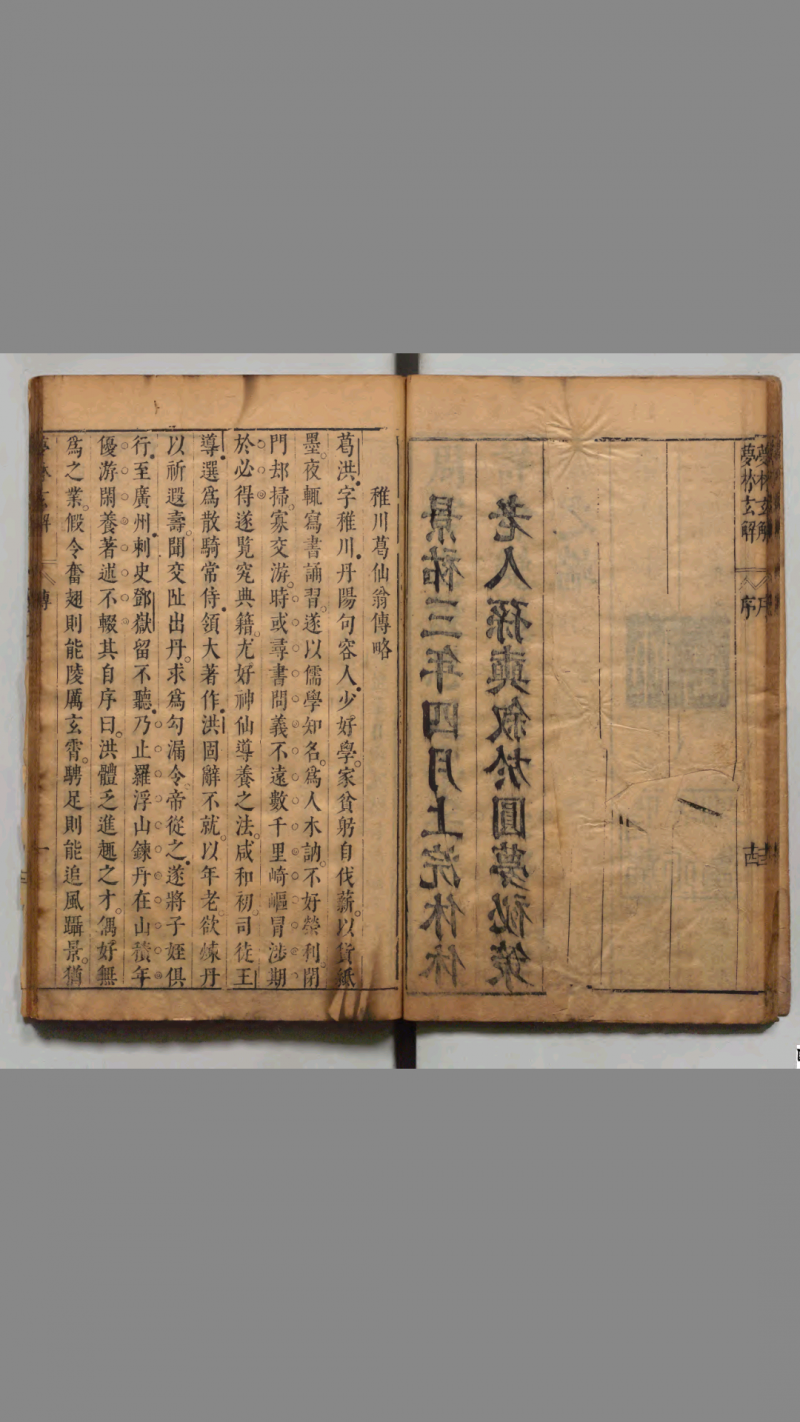 夢林玄解
序
景祐三年四月上浣休休
老人孫奭敘於圓夢秘策
稚川葛仙翁傳略
葛洪字稚川丹陽句容人少好學家貧躬自伐薪以貨紙
墨夜輒寫書誦習遂以儒學知名為人木訥不好榮利閉
門却掃寡交游時或尋書問義不遠數千里崎嶇冒涉期
於必得遂覽究典籍尤好神仙導養之法咸和初司徒王
導選為散騎常侍領大著作洪固辭不就以年老欲煉丹
以祈遐壽聞交趾出丹求為勾漏令帝從之遂將子姪俱
行至廣州刺史鄧嶽留不聽乃止羅浮山鍊丹在山積年
優游閒養著述不輟其自序曰洪體乏進趣之才偶好無
為之業假令奮翅則能陵厲玄霄騁足則能追風躡景猶
傳
一